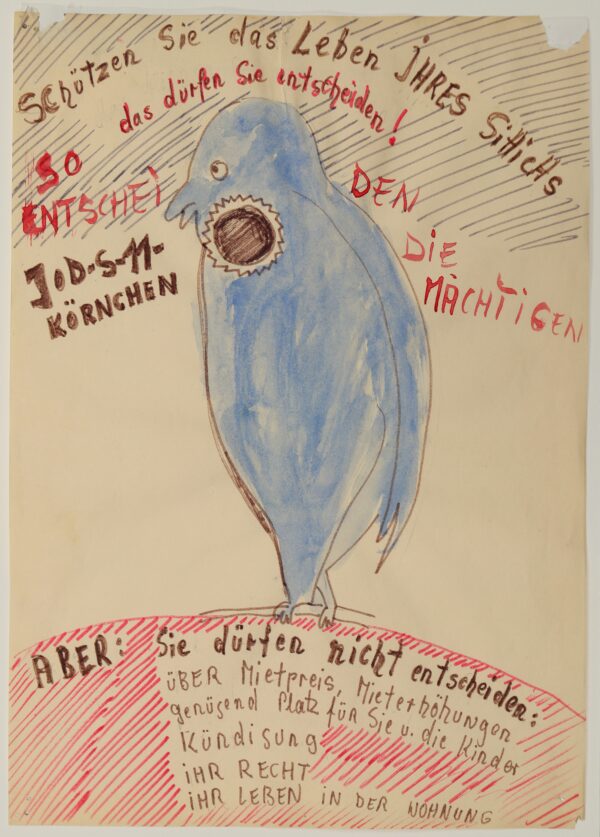 Schützen Sie das Leben IHRES Sittichs
das dürfen Sie entscheiden!
SO ENTSCHEIDEN DIE MÄCHTIGEN
JOD-S-11-
KÖRNCHEN
ABER: Sie dürfen nicht entscheiden:
ÜBER Mietpreis, Mieterhöhungen
genügend Platz für Sie u. die Kinder
Kündigung
IHR RECHT
IHR LEBEN IN DER WOHNUNG